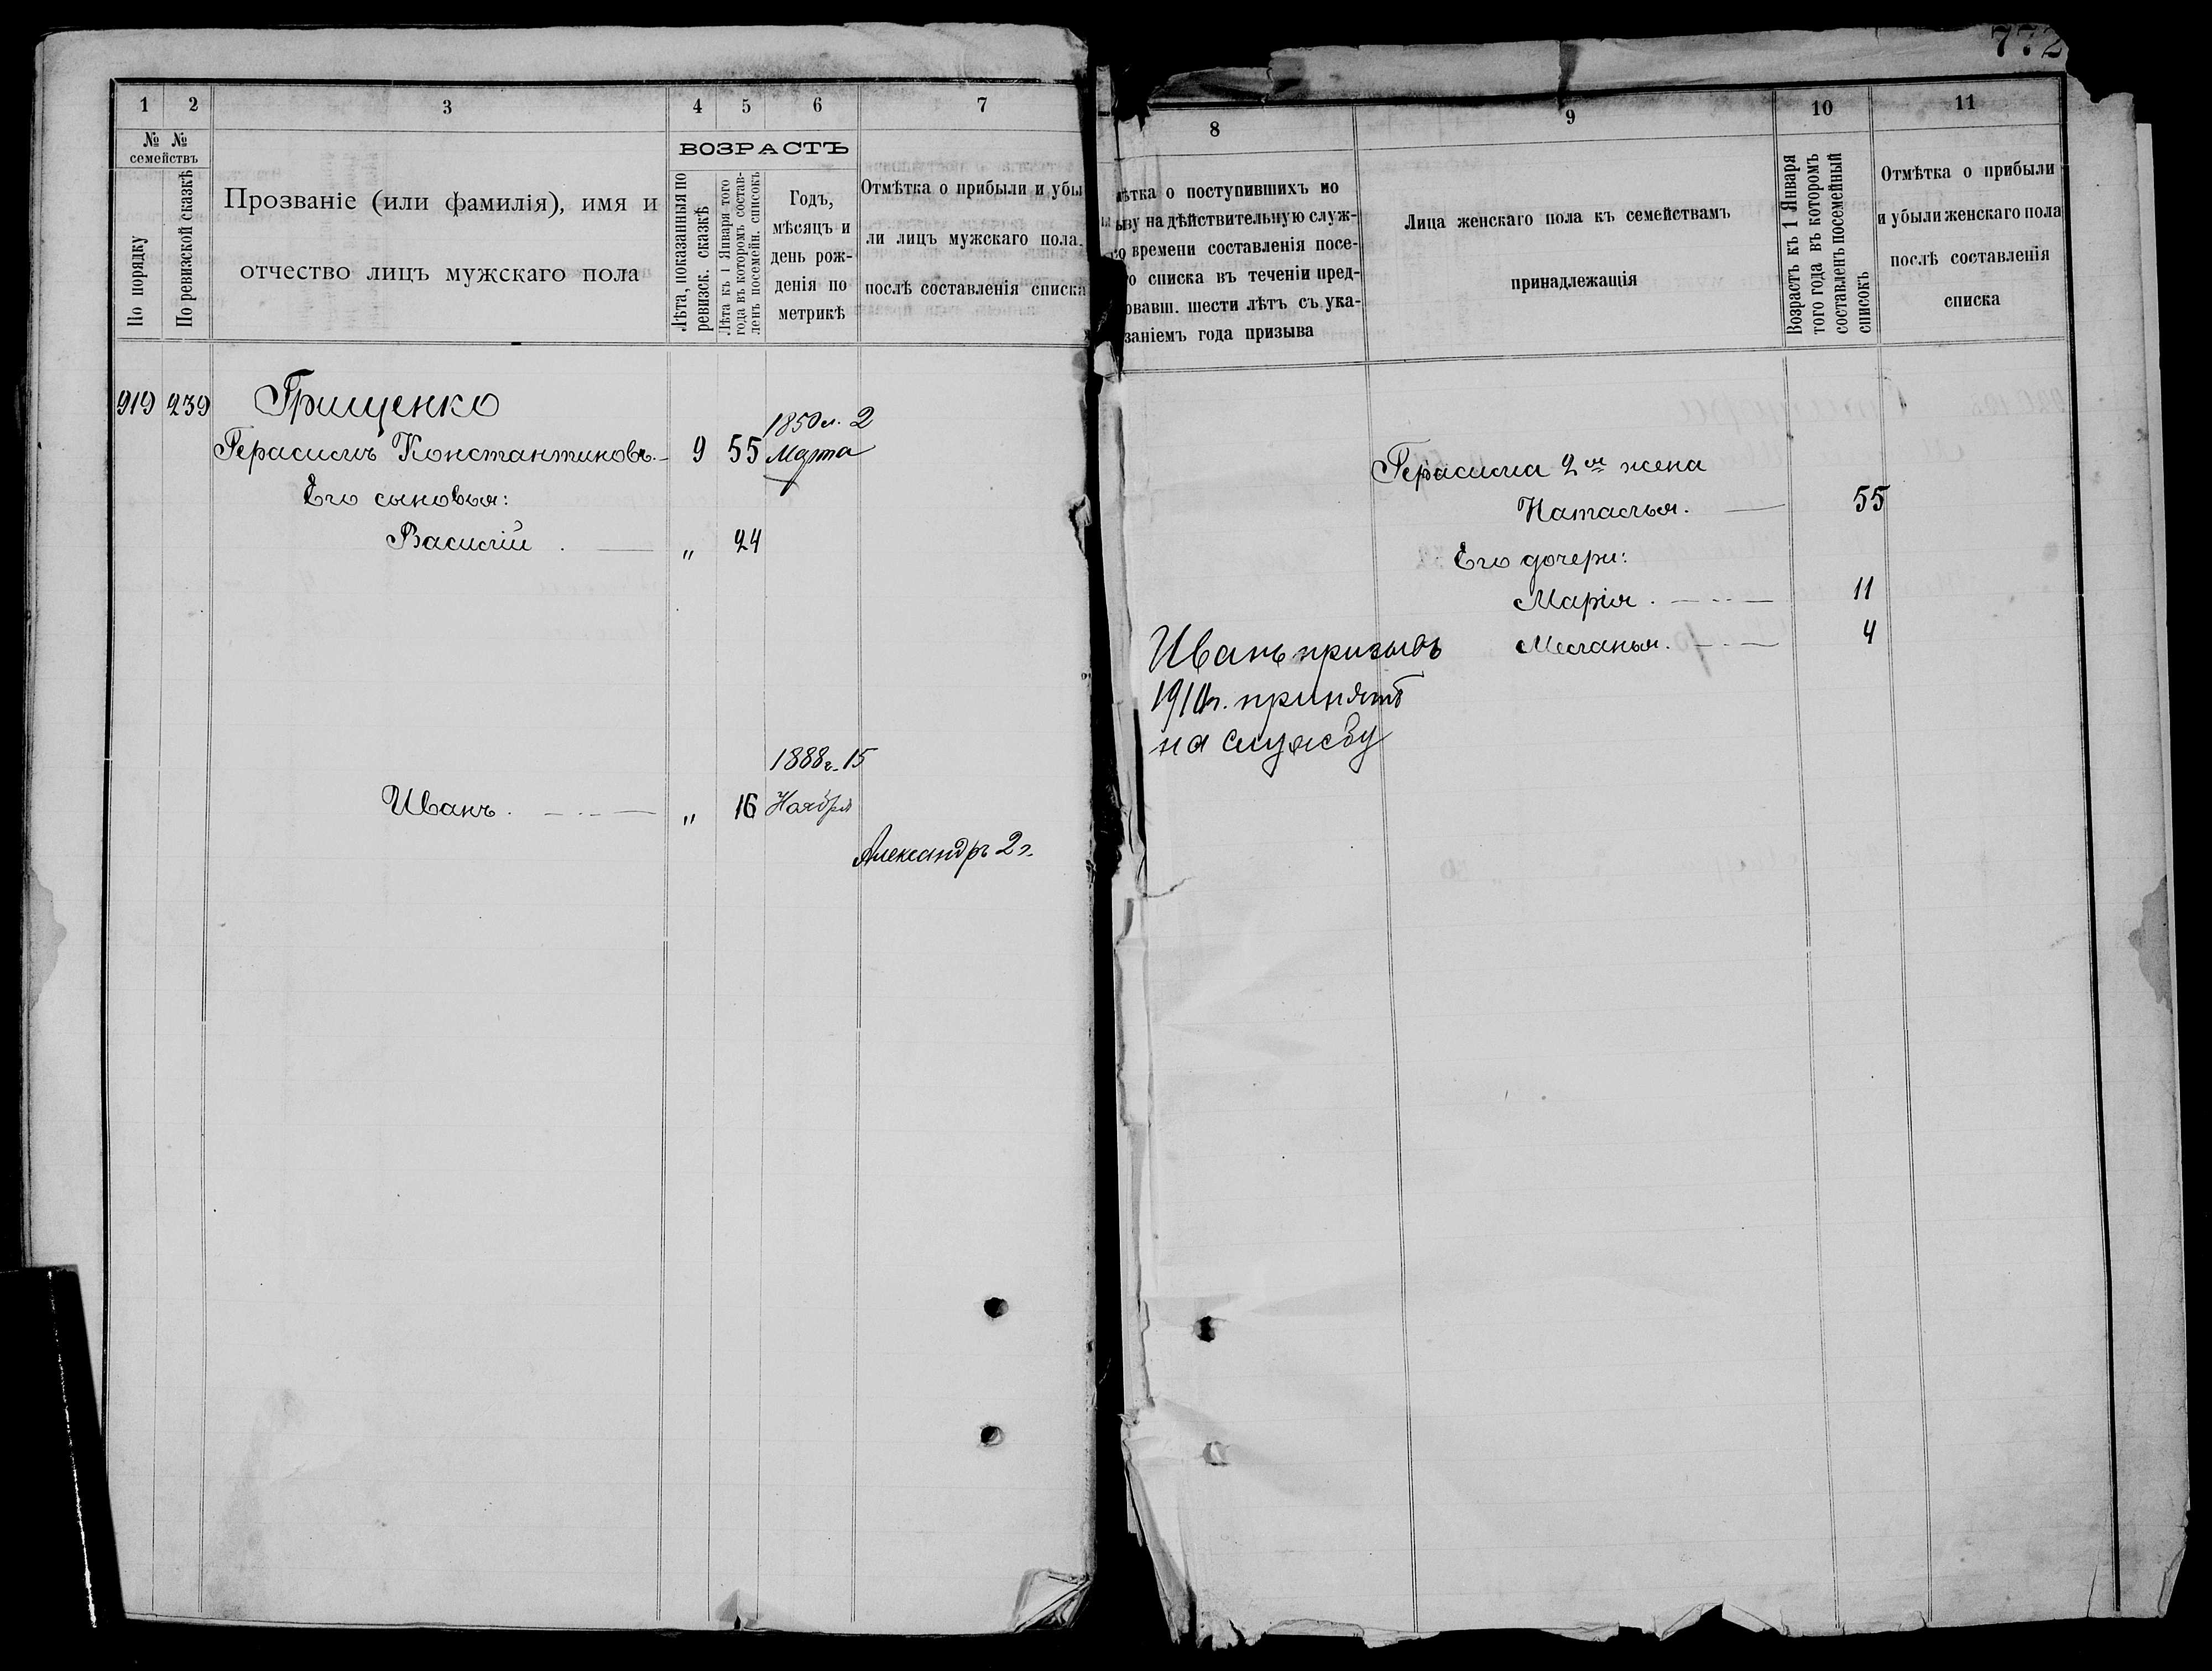 772
1 2 3 4 5 6 7
№ № семействъ
По порядку
По ревизской сказкѣ
Прозваніе (или фамилія), имя и
отчество лицъ мужскаго пола
ВОЗРАСТЪ
Лѣта, показанныя по
ревизск. сказкѣ
Лѣта къ 1 Января того
года въ которомъ состав-
ленъ посемейн. списокъ
Годъ,
мѣсяцъ и
день рож-
денія по
метрикѣ
Отмѣтка о прибыли и убы
ли лицъ мужскаго пола
послѣ составленія списка
919 239 Грищенко
1850 2
Герасимъ Константиновъ. 9 55 Марта
Его сыновья:
Василій . — „ 24
1888г. 15
Иванъ . — „ 16 Ноября
Александръ 2 г.
8 9 10 11
ѣтка о поступившихъ по
ыву на дѣйствительную служ-
о времени составленія посе-
го списка въ теченіи пред-
овавш. шести лѣтъ съ ука-
заніемъ года призыва
Лица женскаго пола къ семействамъ
принадлежащія
Возрастъ къ 1 Января
того года въ которомъ
составленъ посемейный
списокъ
Отмѣтка о прибыли
и убыли женскаго пола
послѣ составленія
списка
Герасима 2ая жена
Наталья. — 55
Его дочери:
Марія . — 11
Меланья. — 4
Иванъ призывъ
1910г. принятъ
на службу